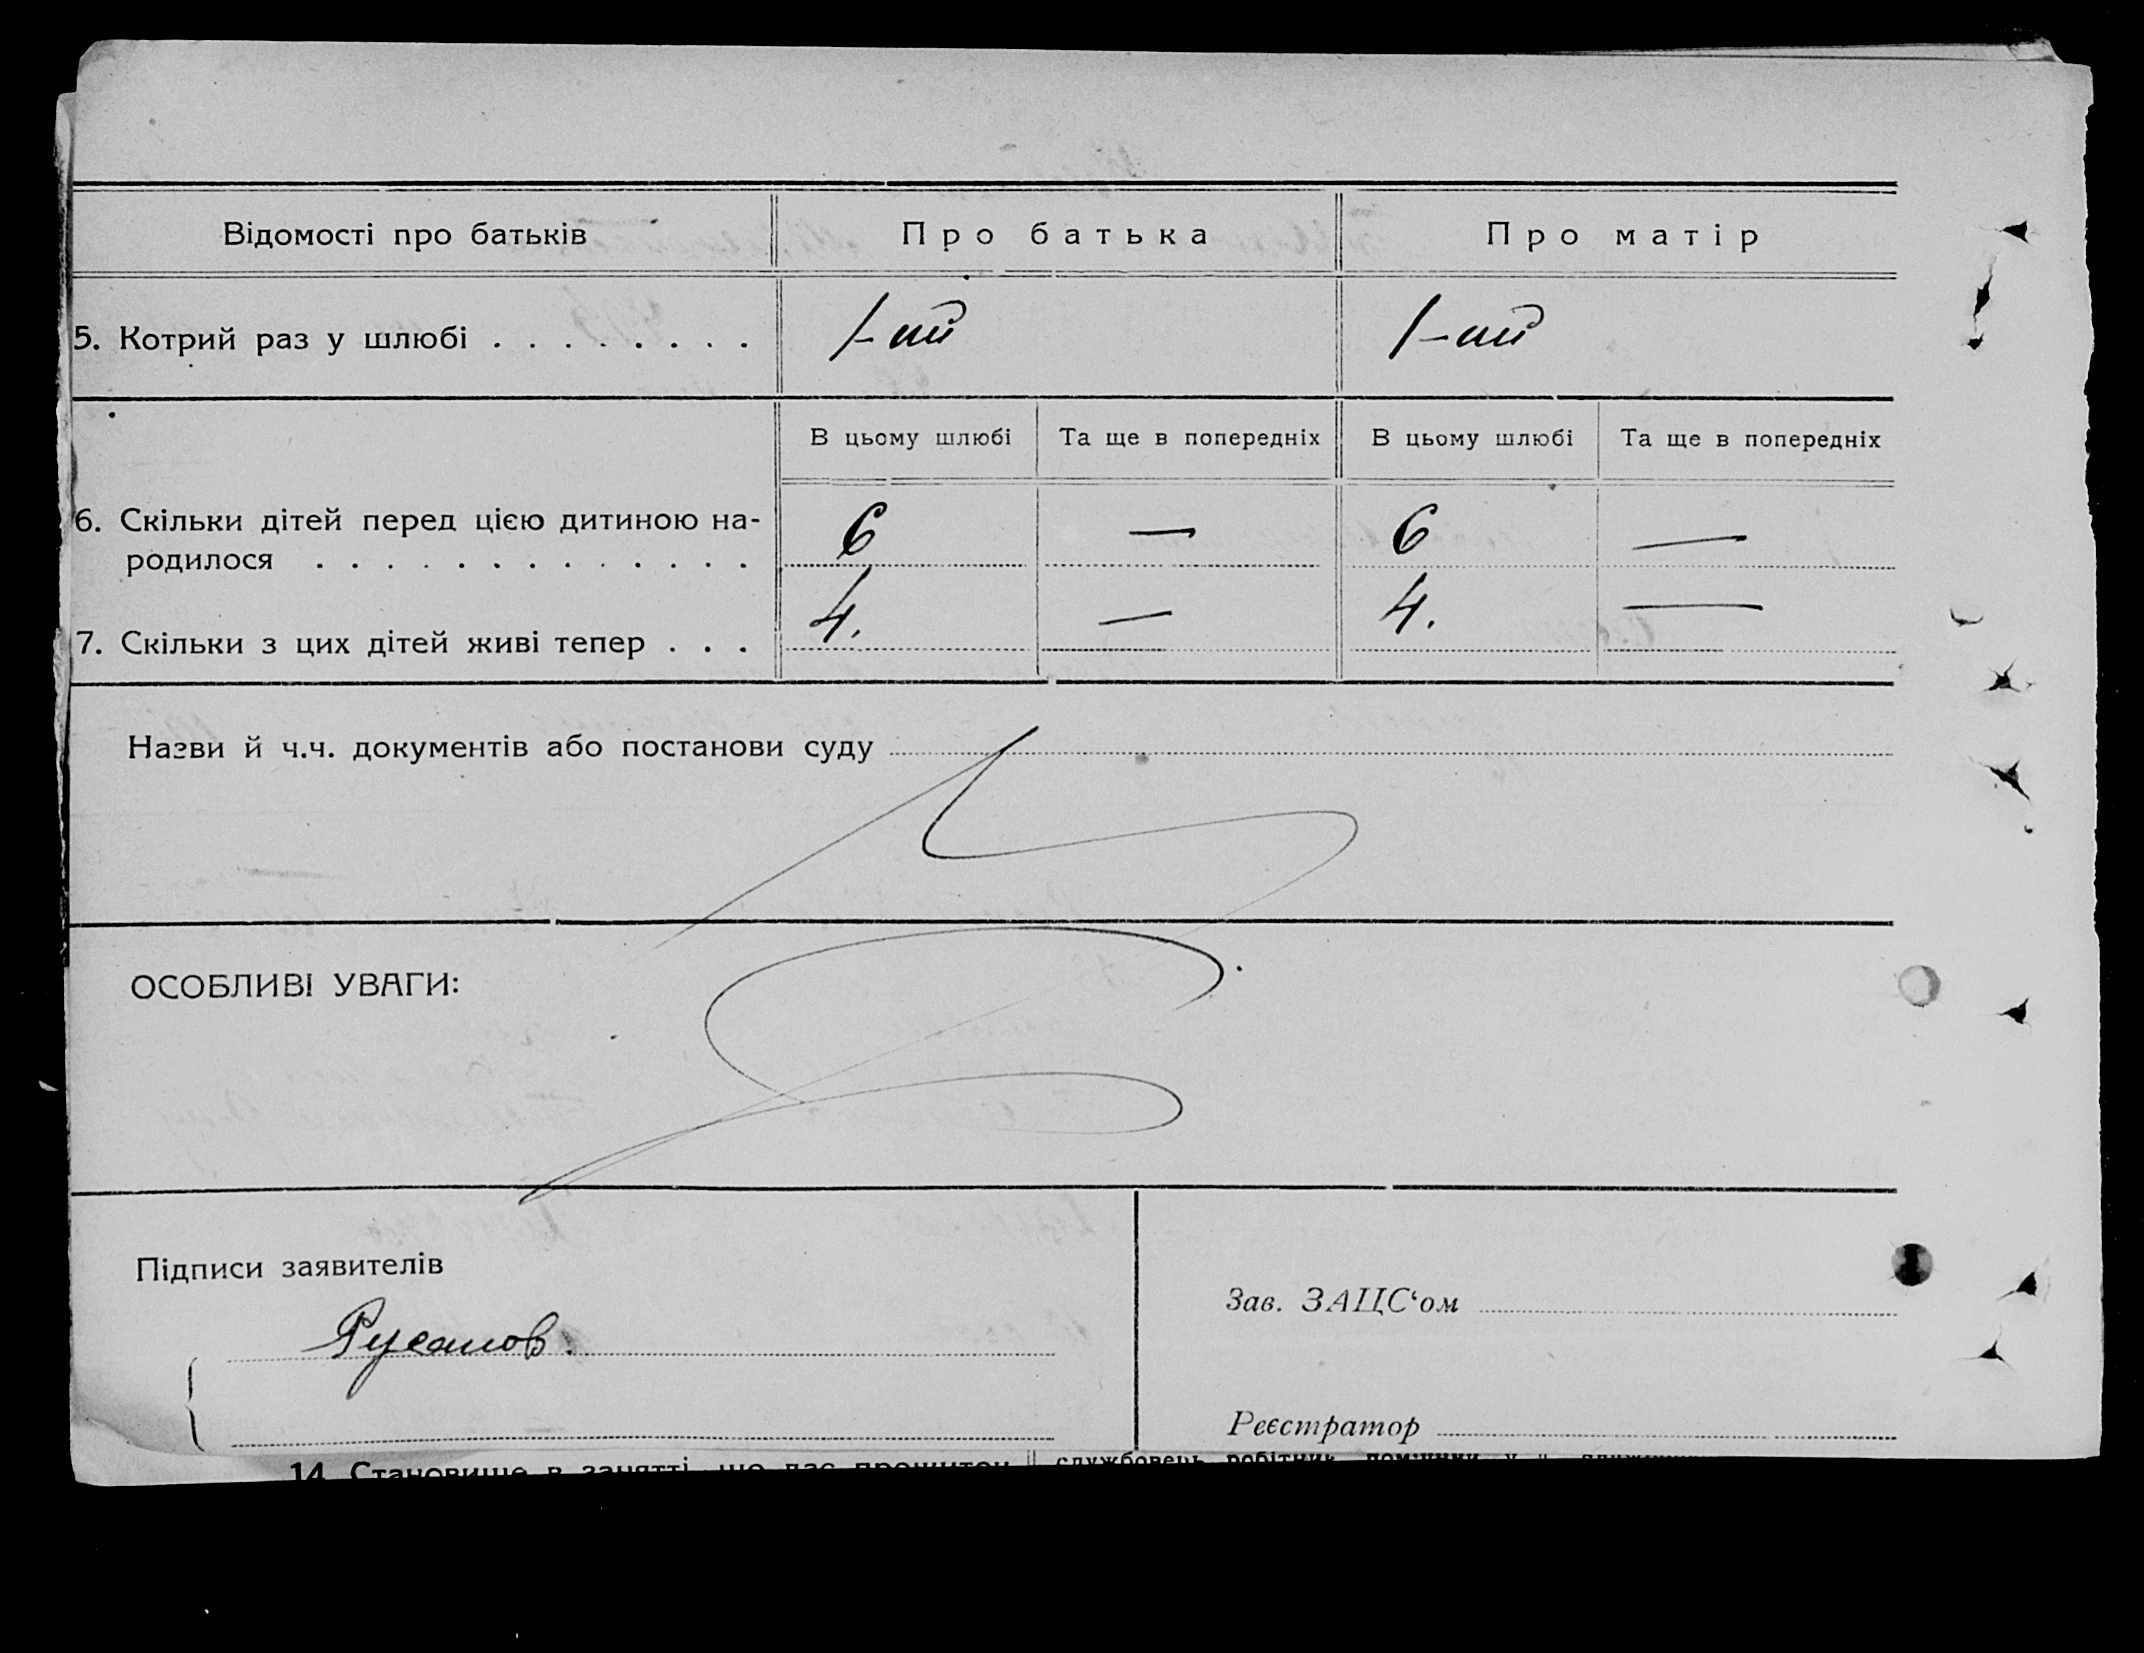 Відомості про батьків Про батька Про матір
5. Котрий раз у шлюбі . . . . . . . . 1-ий 1-ий
В цьому шлюбі Та ще в попередніх В цьому шлюбі Та ще в попередніх
6. Скільки дітей перед цією дитиною на-
родилося . . . . . . . . . . . . . 6 — 6 —
7. Скільки з цих дітей живі тепер . . . 4. — 4. —
Назви й ч.ч. документів або постанови суду
ОСОБЛИВІ УВАГИ:
Підписи заявителів
Зав. ЗАЦС‘ом
Русанов.
Реєстратор
14. Становище в занятті, що дає прожиток службовець, робітник,